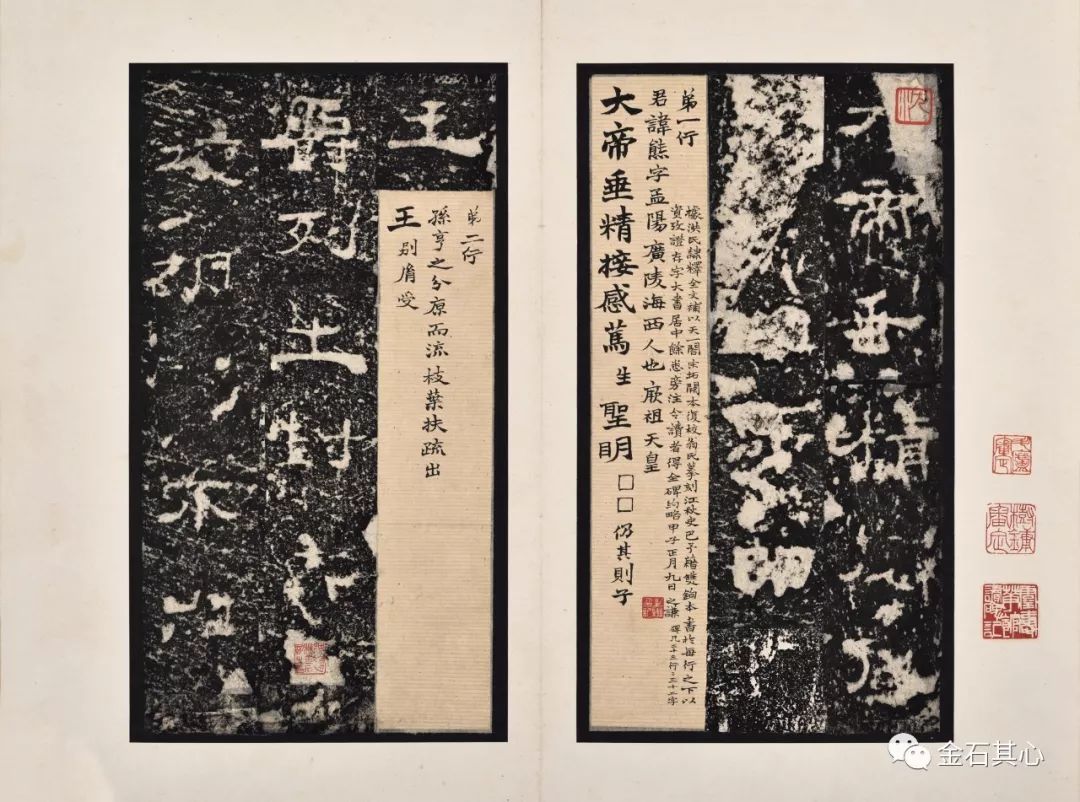 大帝垂精接感
聖明
弟一行
據洪氏隸釋全文補以天一閣宋拓闕本復校翁氏摹刻江秋史巴予藉雙鉤本書於每行之下以
資攷證存字大書居中餘悉旁注令讀者得全碑約略甲子正月九日之謙
碑凡廿三行行三十二字
君諱熊字孟陽廣陵海西人也厥祖天皇
大帝垂精接感篤生聖明□□仍其則子
王
弟二行
孫亨之分原而流枝葉扶疏出
王别胤受
爵列土封
金石其心